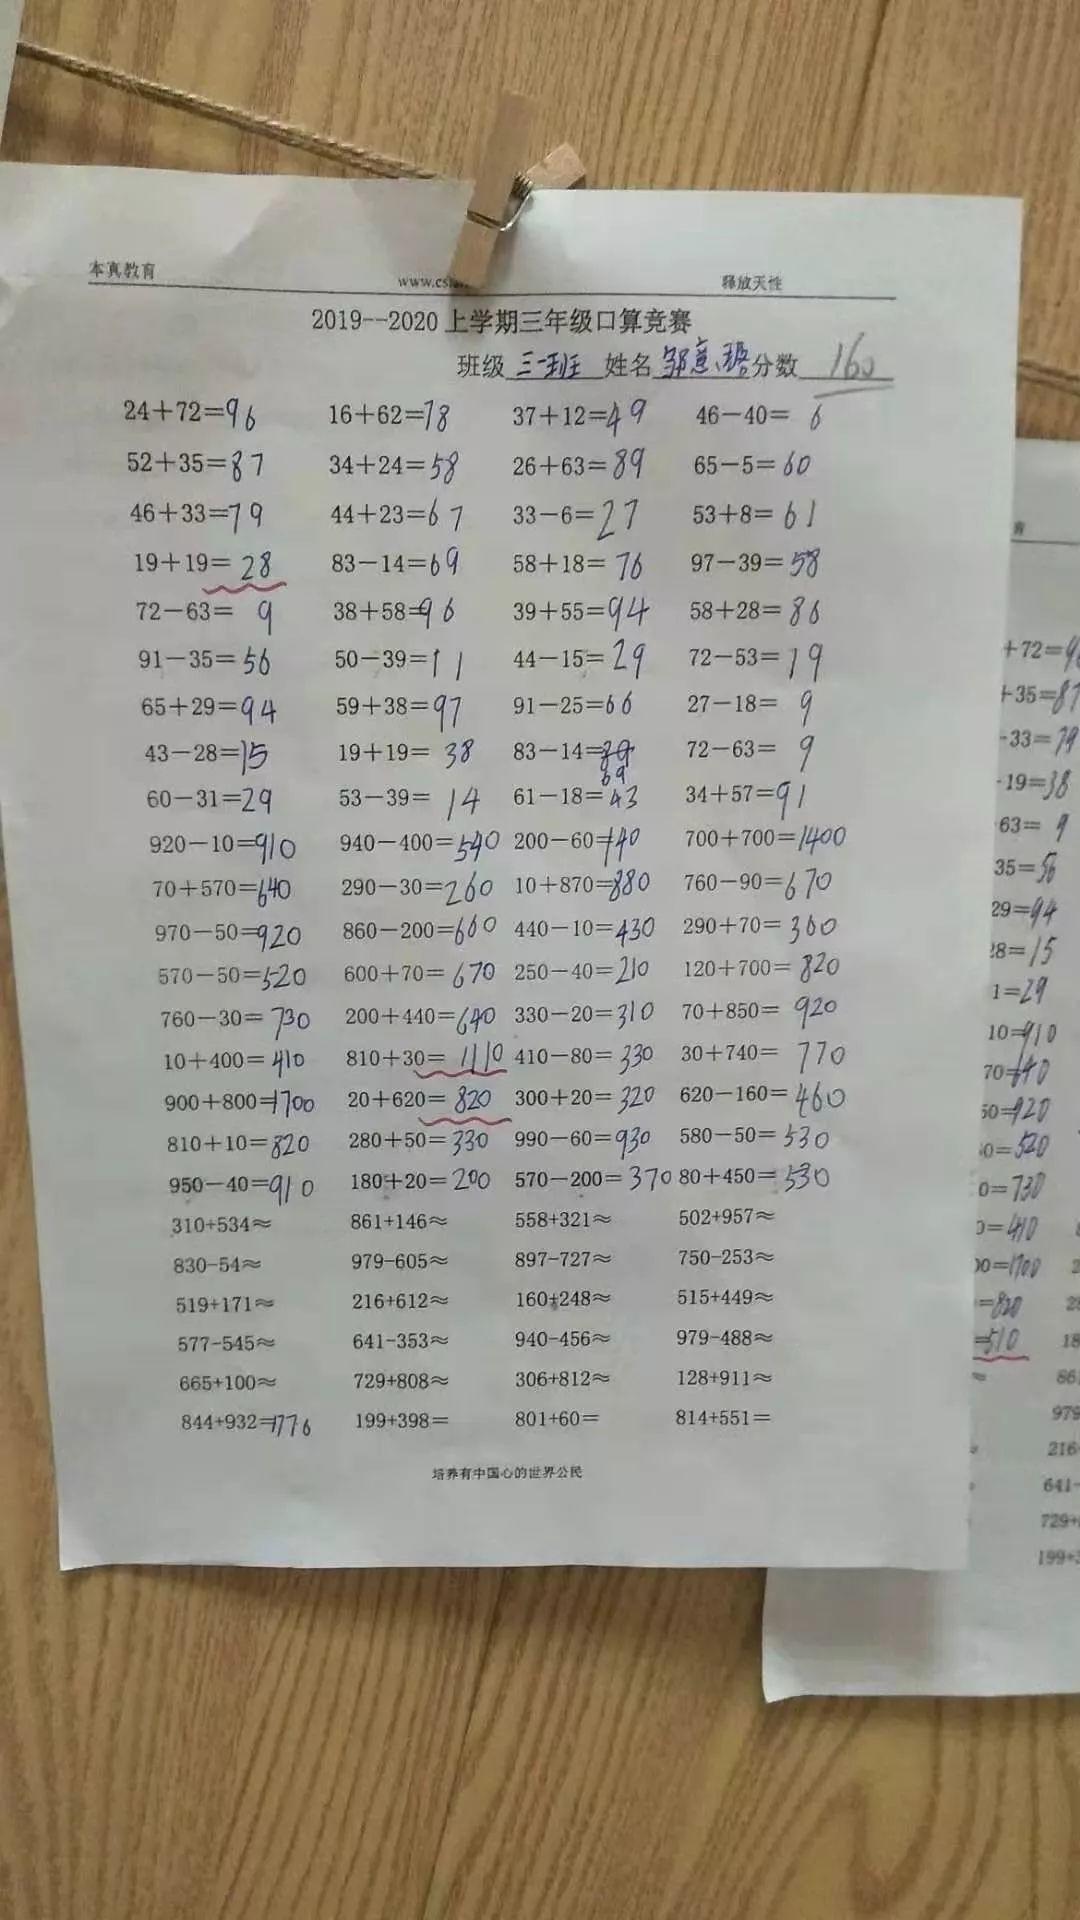 本真教育 释放天性
2019--2020上学期三年级口算竞赛
班级 三一班 姓名 邹意 分数 160
24+72=96 16+62=78 37+12=49 46-40= 6
52+35=87 34+24=58 26+63=89 65-5=60
46+33=79 44+23=67 33-6=27 53+8=61
19+19=28 83-14=69 58+18=76 97-39=58
72-63= 9 38+58=96 39+55=94 58+28=86
91-35=56 50-39=11 44-15=29 72-53=19
65+29=94 59+38=97 91-25=66 27-18= 9
43-28=15 19+19=38 83-14=69 72-63= 9
60-31=29 53-39=14 61-18=43 34+57=91
920-10=910 940-400=540 200-60=140 700+700=1400
70+570=640 290-30=260 10+870=880 760-90=670
970-50=920 860-200=660 440-10=430 290+70=360
570-50=520 600+70=670 250-40=210 120+700=820
760-30=730 200+440=640 330-20=310 70+850=920
10+400=410 810+30=1110 410-80=330 30+740=770
900+800=1700 20+620=820 300+20=320 620-160=460
810+10=820 280+50=330 990-60=930 580-50=530
950-40=910 180+20=200 570-200=370 80+450=530
310+534≈ 861+146≈ 558+321≈ 502+957≈
830-54≈ 979-605≈ 897-727≈ 750-253≈
519+171≈ 216+612≈ 160+248≈ 515+449≈
577-545≈ 641-353≈ 940-456≈ 979-488≈
665+100≈ 729+808≈ 306+812≈ 128+911≈
844+932=1776 199+398= 801+60= 814+551=
培养有中国心的世界公民
育
+72=96
+35=87
-33=79
-19=38
63= 9
35=56
29=94
28=15
1=29
10=910
70=640
50=920
0=520
0=730
0=410
00=1700
=820
=510
979
216
641-
729+
199+3